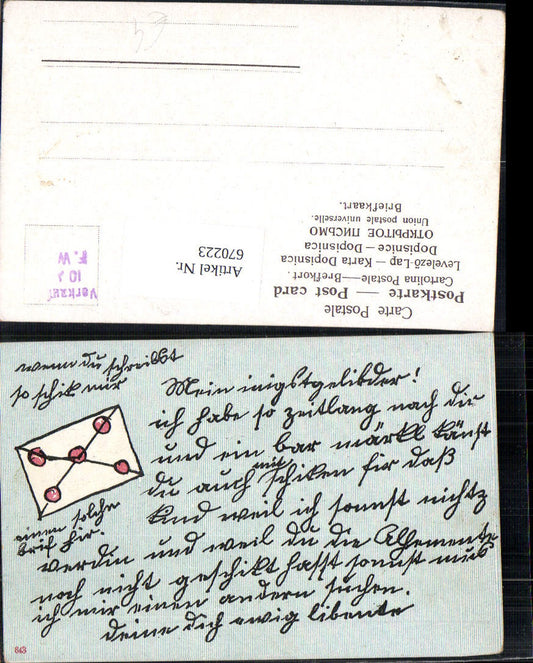 Carte Postale
Postkarte — Post card
Cartolina Postale—Brefkort.
Levelező-Lap — Karta Dopisnica
Dopisnice — Dopisnica
ОТКРЫТОЕ ПИСЬМО
Union postale universelle.
Briefkaart.
Artikel Nr.
670223
10
F. W
wenn du schreibst
so schik mir
einen solchen
brif hir.
Mein inigstgelibder!
ich habe so zeitlang nach dir
und ein bar märkl känst
du auch mit schiken fir daß
kind weil ich sonnst nichtz
verdin und weil du die Allemente
noch nicht geschikt hasst sonnst mus
ich mir einen andern suchen.
deine dich ewig libente
843